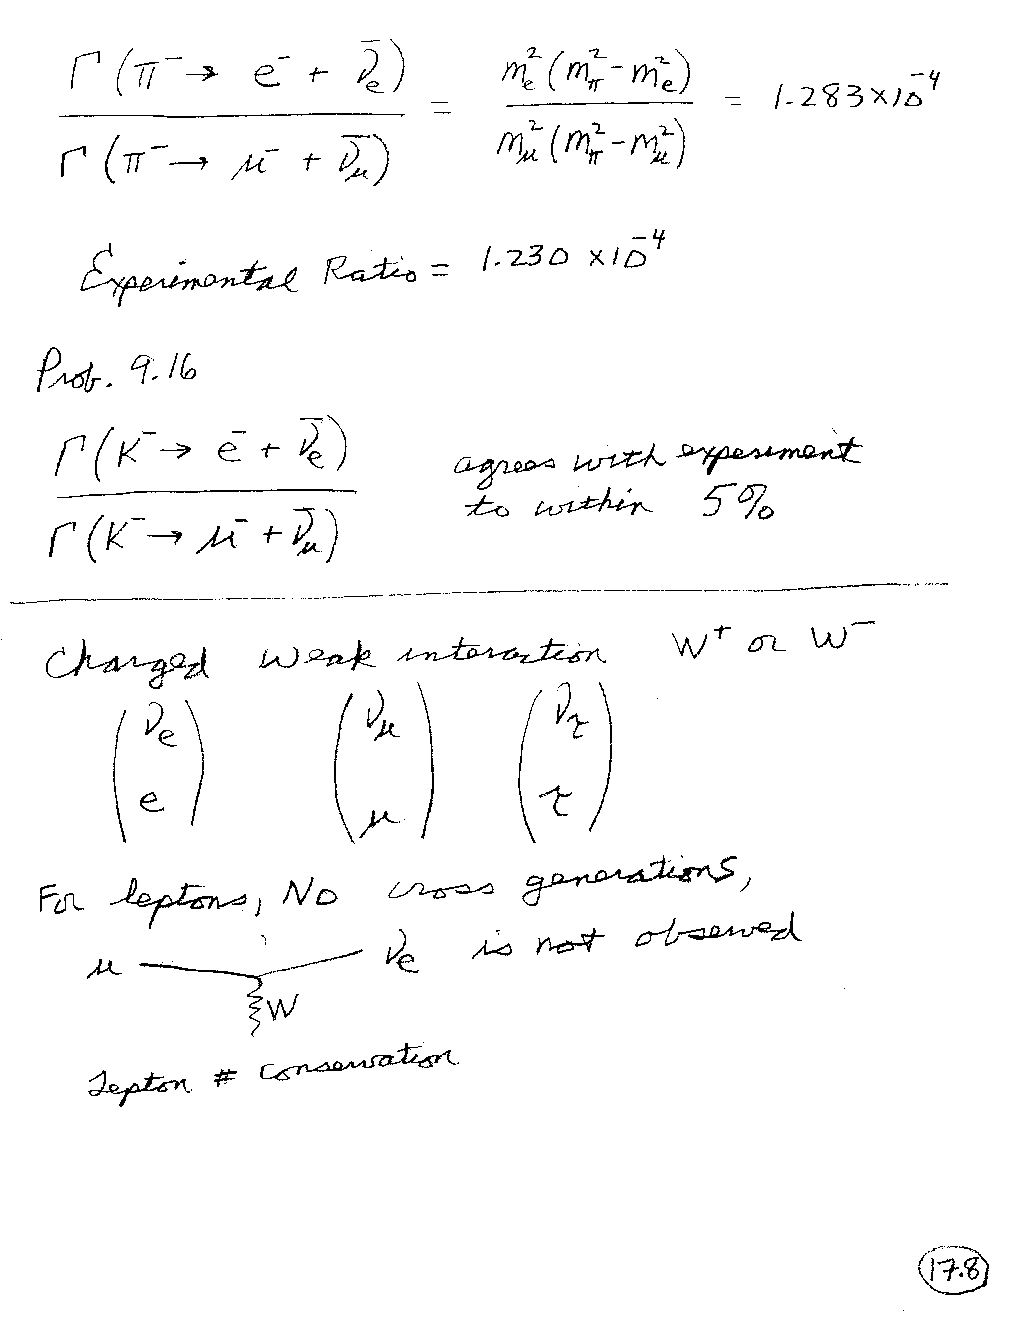 Γ(π⁻ → e⁻ + ν̄_e) / Γ(π⁻ → μ⁻ + ν̄_μ) = m_e²(m_π² - m_e²) / m_μ²(m_π² - m_μ²) = 1.283 × 10⁻⁴
Experimental Ratio = 1.230 × 10⁻⁴
Prob. 9.16
Γ(K⁻ → e⁻ + ν̄_e) / Γ(K⁻ → μ⁻ + ν̄_μ) agrees with experiment
to within 5%
Charged weak interaction W⁺ or W⁻
(ν_e e) (ν_μ μ) (ν_τ τ)
For leptons, No cross generations,
μ ν_e is not observed
W
Lepton # conservation
17.8